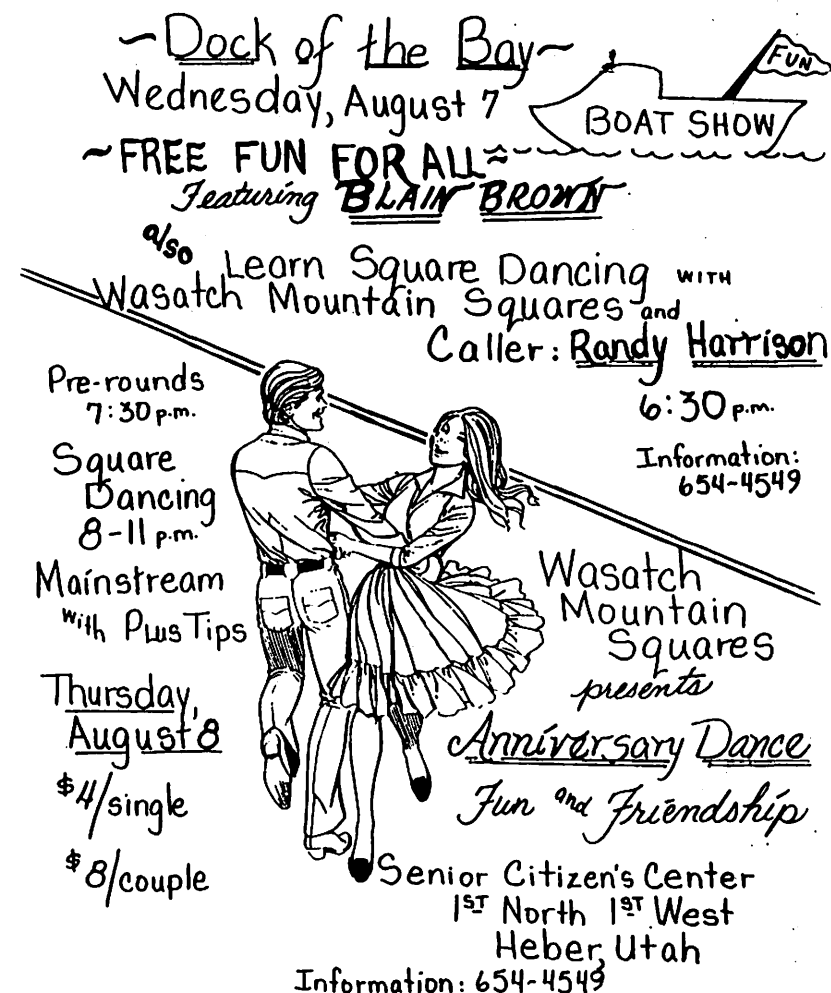 ~Dock of the Bay~
Wednesday, August 7
FUN
BOAT SHOW
~FREE FUN FOR ALL~
Featuring BLAIN BROWN
also Learn Square Dancing WITH
Wasatch Mountain Squares and
Caller: Randy Harrison
6:30 p.m.
Information:
654-4549
Pre-rounds
7:30 p.m.
Square
Dancing
8-11 p.m.
Mainstream
with Plus Tips
Thursday,
August 8
$4/single
$8/couple
Wasatch
Mountain
Squares
presents
Anniversary Dance
Fun and Friendship
Senior Citizen's Center
1ST North 1ST West
Heber, Utah
Information: 654-4549